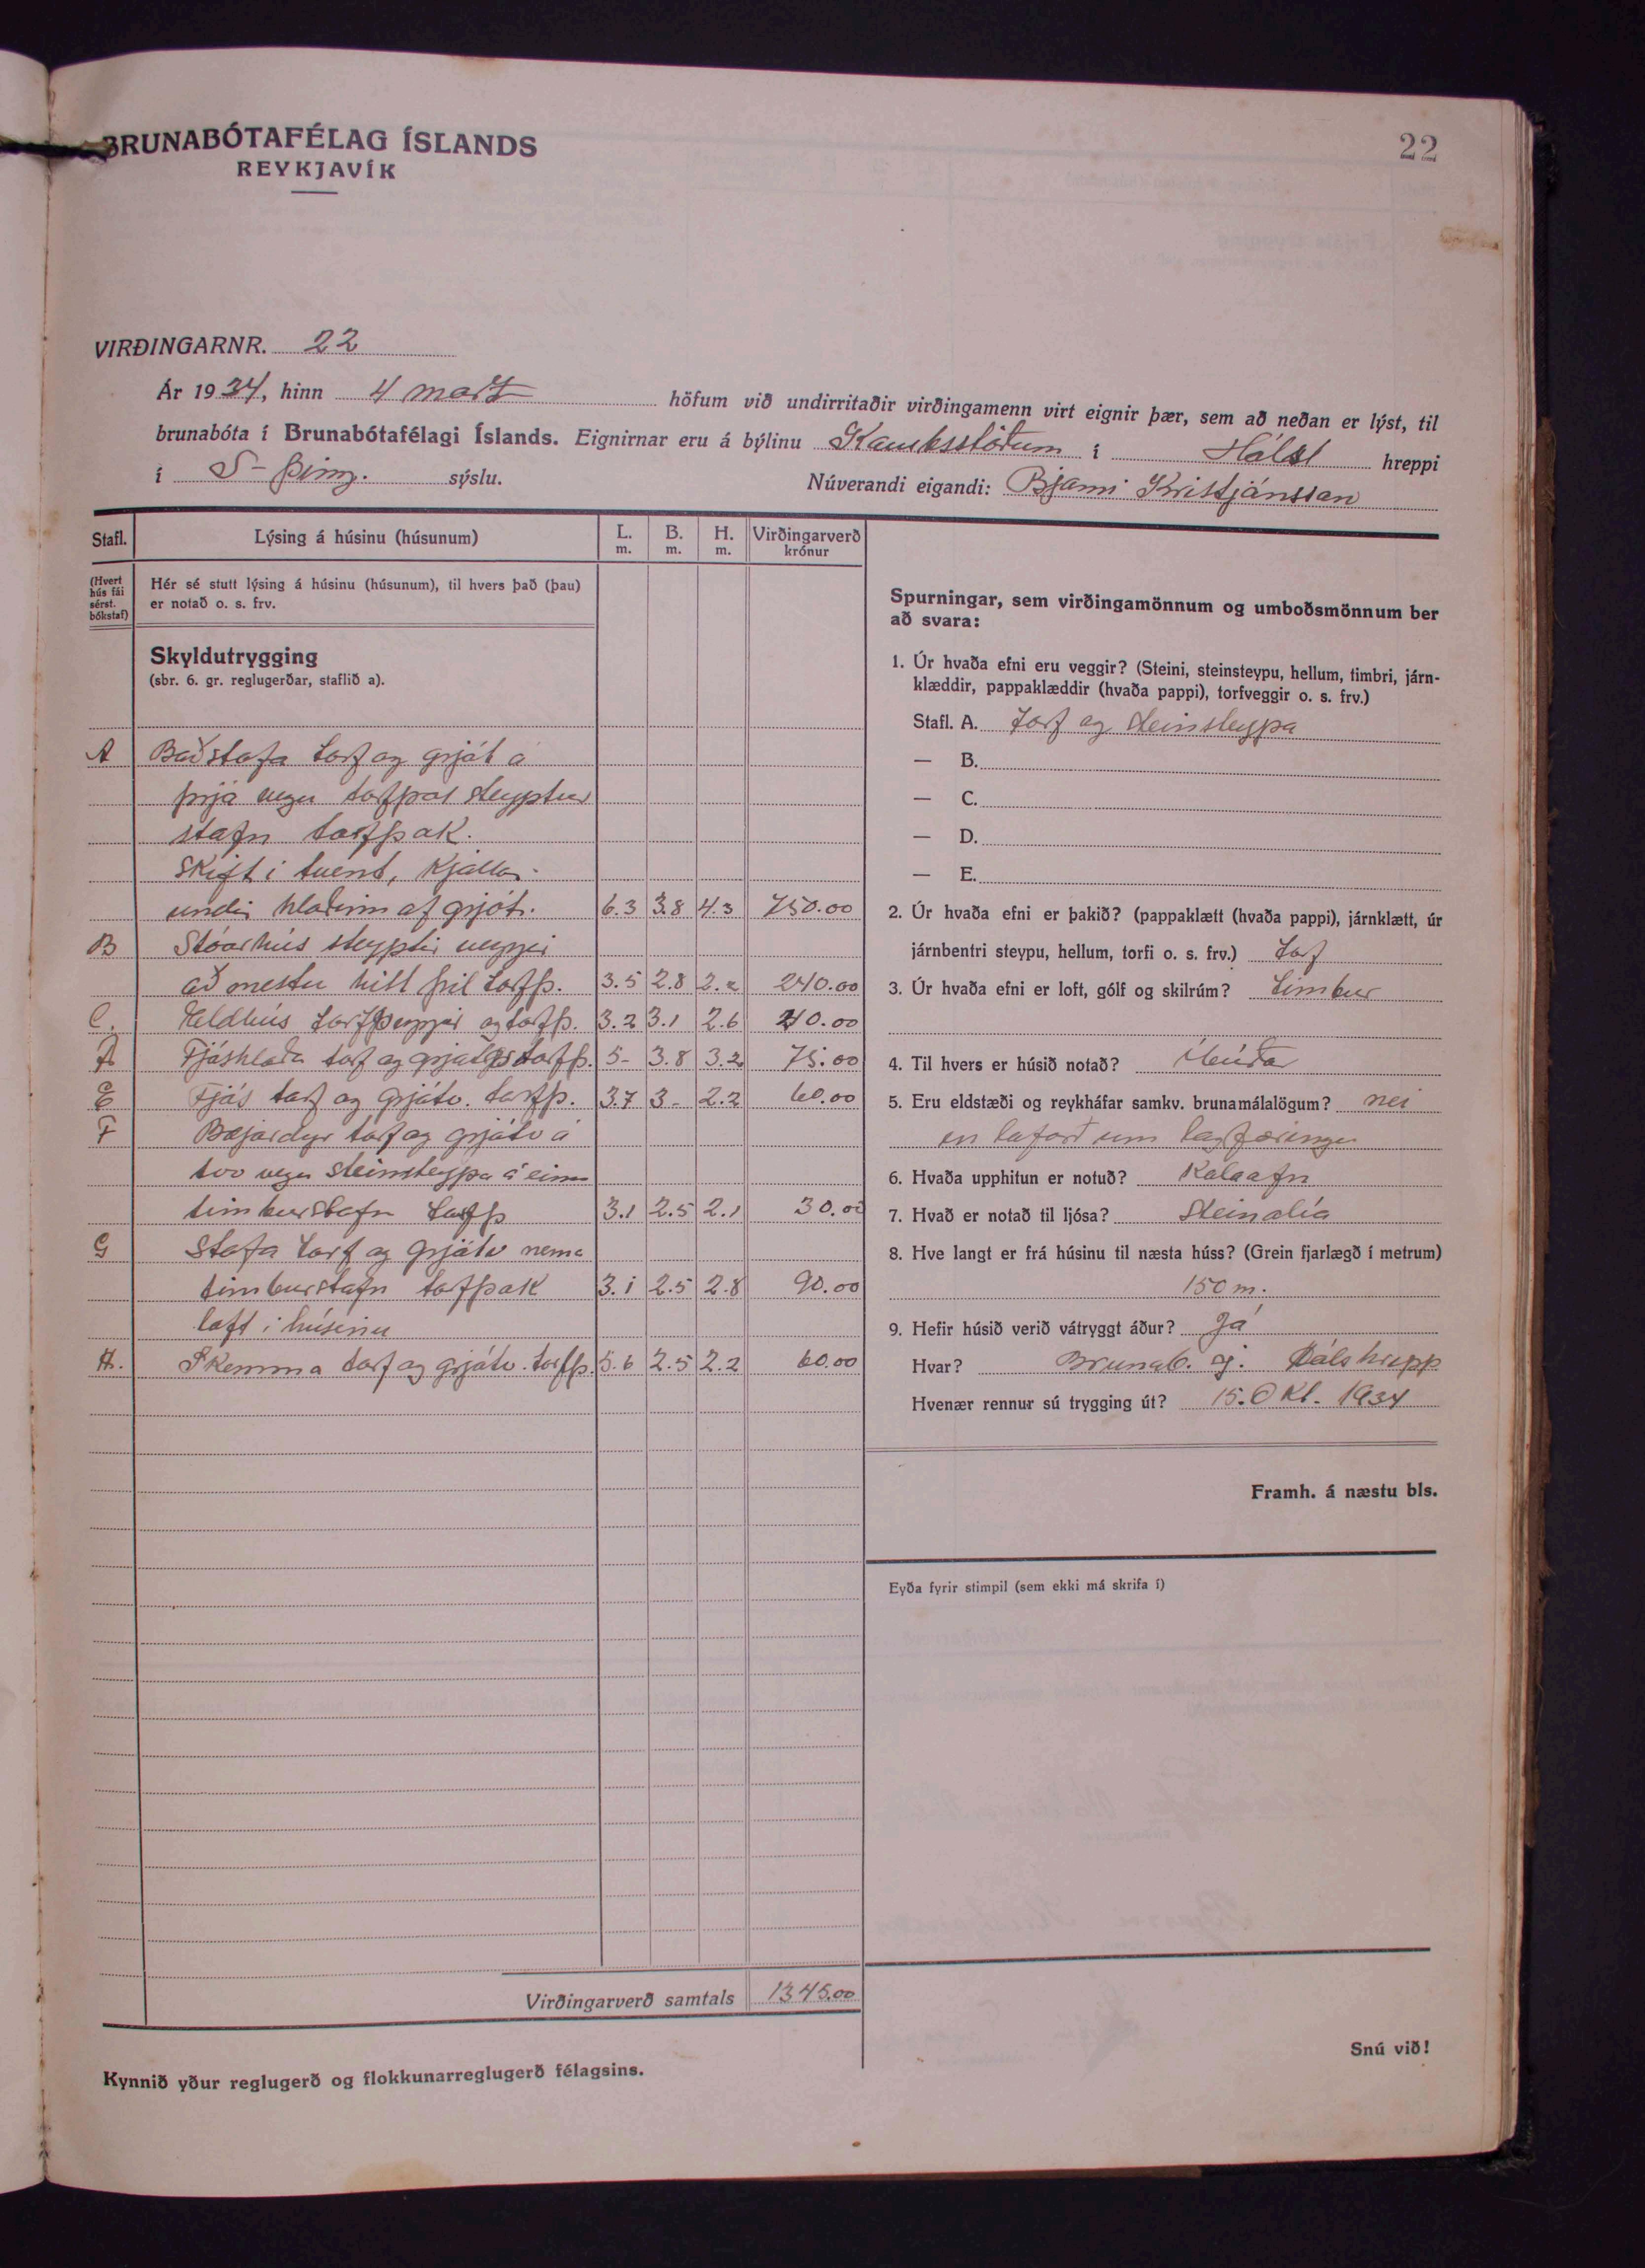 BRUNABÓTAFÉLAG ÍSLANDS
REYKJAVÍK
22
VIRÐINGARNR. 22
Ár 1934, hinn 4 mars höfum við undirritaðir virðingamenn virt eignir þær, sem að neðan er lýst, til
brunabóta í Brunabótafélagi Íslands. Eignirnar eru á býlinu Kambsstöðum í Háls hreppi
í S-Þing. sýslu. Núverandi eigandi: Bjarni Kristjánsson
Stafl. Lýsing á húsinu (húsunum) L. m. B. m. H. m. Virðingarverð krónur
(Hvert hús fái sérst. bókstaf)
Hér sé stutt lýsing á húsinu (húsunum), til hvers það (þau)
er notað o. s. frv.
Skyldutrygging
(sbr. 6. gr. reglugerðar, staflið a).
A Baðstofa torf og grjót á
þrjá vegu torfþak steyptur
stafn torfþak.
Skift í tvent, Kjallar-
undir hlaðinn af grjóti. 6.3 3.8 4.3 750.00
B Stóarhús steyptir veggir
að mestu hitt þil torfþ. 3.5 2.8 2.2 240.00
C. Eldhús torfveggir og torfþ. 3.2 3.1 2.6 40.00
D Fjóshlaða torf og grjót torfþ. 5- 3.8 3.2 75.00
E Fjós torf og grjótv. torfþ. 3.7 3- 2.2 60.00
F Bæjardyr torf og grjótv á
tvo vegu steinsteypa á einn
timburstafn torfþ 3.1 2.5 2.1 30.00
G Stofa torf og grjótv nema
timburstafn torfþak 3.1 2.5 2.8 90.00
loft í húsinu
H. Skemma torf og grjótv. torfþ. 5.6 2.5 2.2 60.00
Virðingarverð samtals 1345.00
Kynnið yður reglugerð og flokkunarreglugerð félagsins.
Spurningar, sem virðingamönnum og umboðsmönnum ber
að svara:
1. Úr hvaða efni eru veggir? (Steini, steinsteypu, hellum, timbri, járn-
klæddir, pappaklæddir (hvaða pappi), torfveggir o. s. frv.)
Stafl. A. Torf og steinsteypa
— B.
— C.
— D.
— E.
2. Úr hvaða efni er þakið? (pappaklætt (hvaða pappi), járnklætt, úr
járnbentri steypu, hellum, torfi o. s. frv.) Torf
3. Úr hvaða efni er loft, gólf og skilrúm? Timbur
4. Til hvers er húsið notað? Íbúðar
5. Eru eldstæði og reykháfar samkv. brunamálalögum? nei
en loforð um lagfæringu
6. Hvaða upphitun er notuð? Kolaofn
7. Hvað er notað til ljósa? Steinolía
8. Hve langt er frá húsinu til næsta húss? (Grein fjarlægð í metrum)
150 m.
9. Hefir húsið verið vátryggt áður? Já
Hvar? Brunab. sj. Hálshrepp
Hvenær rennur sú trygging út? 15. Okt. 1934
Framh. á næstu bls.
Eyða fyrir stimpil (sem ekki má skrifa í)
Snú við!